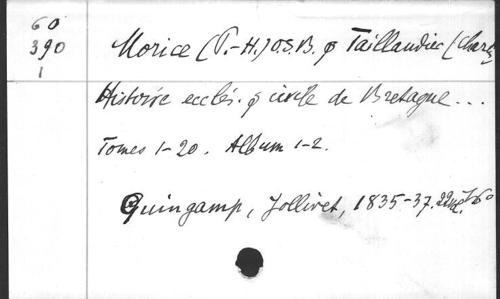 60
390
1
Morice (P.-H.) O.S.B. & Taillandier (Charles
Histoire ecclés. & civile de Bretagne...
Tomes 1-20. Album 1-2.
Guingamp, Jollivet, 1835-37.